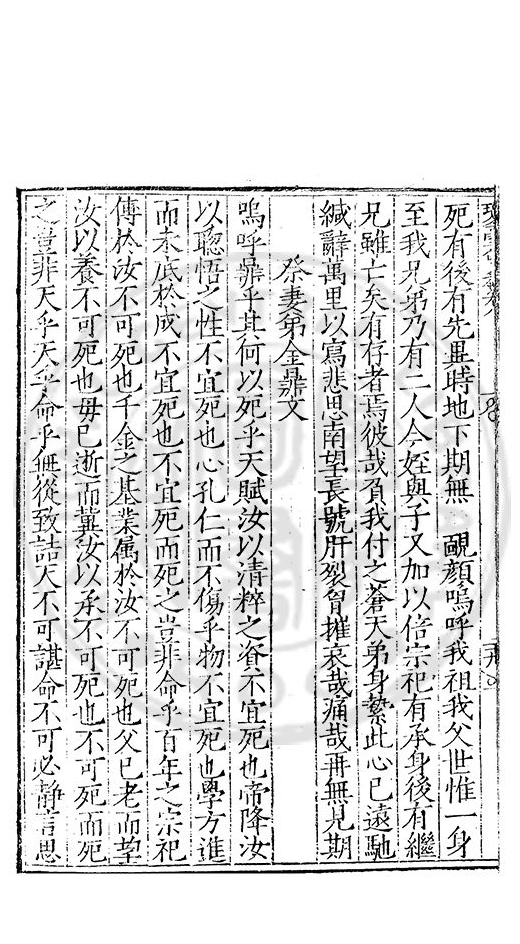 死有後有先異時地下期無 靦顏嗚呼我祖我父世惟一身
至我兄弟乃有二人今姪與子又加以倍宗祀有承身後有繼
兄雖亡矣有存者焉彼哉負我付之蒼天弟身縶此心已遠馳
緘辭萬里以寫悲思南望長號肝裂胷摧哀哉痛哉再無見期
祭妻弟金鼎文
嗚呼鼎乎其何以死乎天賦汝以清粹之資不宜死也帝降汝
以聰悟之性不宜死也心孔仁而不傷乎物不宜死也學方進
而未底於成不宜死也不宜死而死之豈非命乎百年之宗祀
傳於汝不可死也千金之基業属於汝不可死也父已老而望
汝以養不可死也毋已逝而冀汝以承不可死也不可死而死
之豈非天乎天乎命乎無從致詰天不可諶命不可必静言思